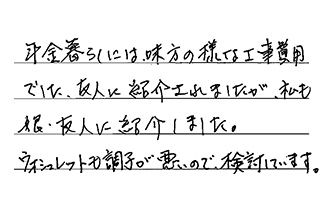 年金暮らしには、味方の様な工事費用
でした、友人に紹介されましたが、私も
娘・友人に紹介しました。
ウォシュレットも調子が悪いので、検討しています。